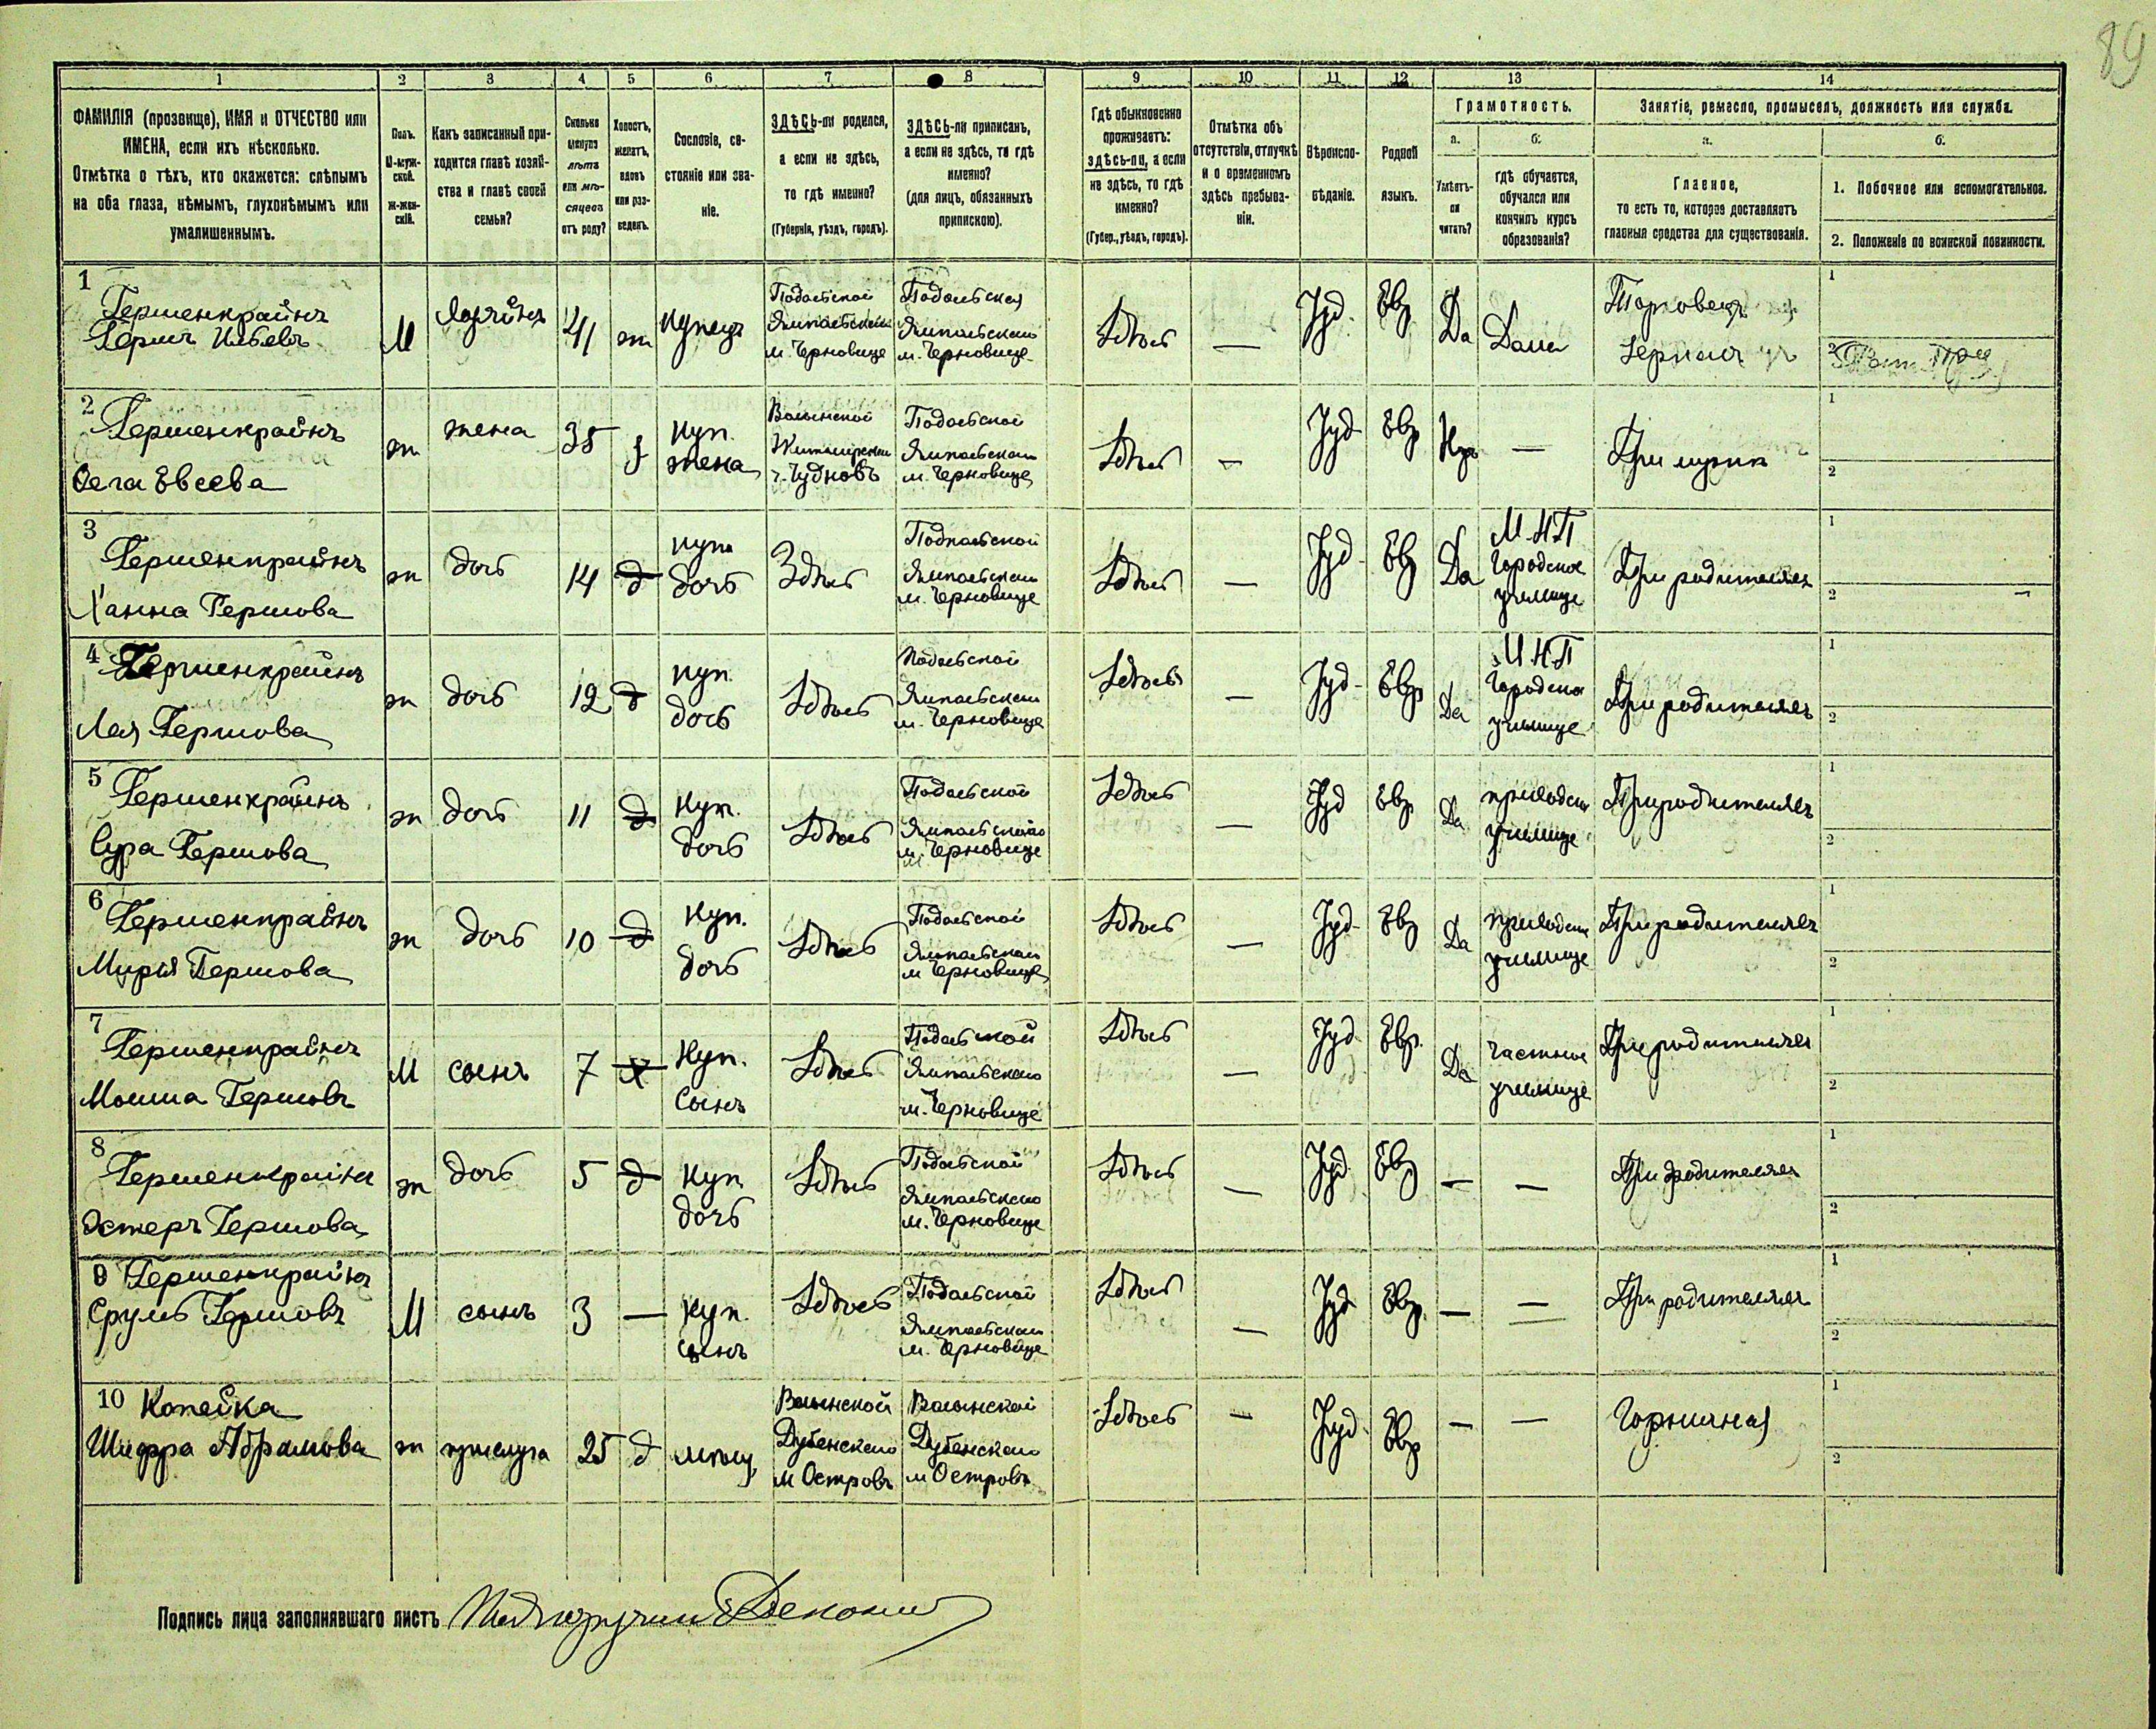 89
1 2 3 4 5 6 7 8 9 10 11 12 13 14
ФАМИЛІЯ (прозвище), ИМЯ и ОТЧЕСТВО или
ИМЕНА, если ихъ нѣсколько.
Отмѣтка о тѣхъ, кто окажется: слѣпымъ
на оба глаза, нѣмымъ, глухонѣмымъ или
умалишеннымъ.
Полъ.
М-муж-
ской.
Ж-жен-
скій.
Какъ записанный при-
ходится главѣ хозяй-
ства и главѣ своей
семьи?
Сколько
минуло
лѣтъ
или мѣ-
сяцевъ
отъ роду?
Холостъ,
женатъ,
вдовъ
или раз-
веденъ.
Сословіе, со-
стояніе или зва-
ніе.
ЗДѢСЬ-ли родился,
а если не здѣсь,
то гдѣ именно?
(Губернія, уѣздъ, городъ).
ЗДѢСЬ-ли приписанъ,
а если не здѣсь, то гдѣ
именно?
(для лицъ, обязанныхъ
припискою).
Гдѣ обыкновенно
проживаетъ:
здѣсь-ли, а если
не здѣсь, то гдѣ
именно?
(Губер., уѣздъ, городъ).
Отмѣтка объ
отсутствіи, отлучкѣ
и о временномъ
здѣсь пребыва-
ніи.
Вѣроиспо-
вѣданіе.
Родной
языкъ.
Грамотность.
а.
Умѣетъ-
ли
читать?
б.
гдѣ обучается,
обучался или
кончилъ курсъ
образованія?
Занятіе, ремесло, промыселъ, должность или служба.
а.
Главное,
то есть то, которое доставляетъ
главныя средства для существованія.
б.
1. Побочное или вспомогательное.
2. Положеніе по воинской повинности.
1
Гершенкрайнъ
Гершъ
М
Хозяинъ
41
ж
Купецъ
Подольской
Ямпольскаго
м. Черновице
Подольской
Ямпольскаго
м. Черновице
Здѣсь
—
Іуд.
Евр
Да
Дома
Торговецъ
1
2
2
Гершенкрайнъ
Евсеева
ж
жена
35
Куп.
жена
Волынской
Житомірскаго
г. Чудновъ
Подольской
Ямпольскаго
м. Черновице
Здѣсь
—
Іуд
Евр
—
При мужѣ
1
2
3
Гершенкрайнъ
Ханна Гершова
ж
дочь
14
д
куп.
дочь
Здѣсь
Подольской
Ямпольскаго
м. Черновице
Здѣсь
—
Іуд
Евр
Да
М.Н.П
Городское
училище
При родителяхъ
1
2
4
Гершенкрайнъ
Лея Гершова
ж
дочь
12
д
куп.
дочь
Здѣсь
Подольской
Ямпольскаго
м. Черновице
Здѣсь
—
Іуд
Евр
Да
М.Н.П
Городское
училище
При родителяхъ
1
2
5
Гершенкрайнъ
Сура Гершова
ж
дочь
11
д
Куп.
дочь
Здѣсь
Подольской
Ямпольскаго
м. Черновице
Здѣсь
—
Іуд
Евр
Да
приходск
училище
При родителяхъ
1
2
6
Гершенкрайнъ
Гершова
ж
дочь
10
д
Куп.
дочь
Здѣсь
Подольской
Ямпольскаго
м Черновице
Здѣсь
—
Іуд
Евр
Да
приходск
училище
При родителяхъ
1
2
7
Гершенкрайнъ
Мошка Гершовъ
М
сынъ
7
х
Куп.
Сынъ
Здѣсь
Подольской
Ямпольскаго
м. Черновице
Здѣсь
—
Іуд
Евр.
Да
частное
училище
При родителяхъ
1
2
8
Гершенкрайнъ
Эстеръ Гершова
ж
дочь
5
д
Куп
дочь
Здѣсь
Подольской
Ямпольскаго
м. Черновице
Здѣсь
—
Іуд
Евр
—
—
При родителяхъ
1
2
9 Гершенкрайнъ
Сруль Гершовъ
М
сынъ
3
—
Куп.
сынъ
Здѣсь
Подольской
Ямпольскаго
м. Черновице
Здѣсь
—
Іуд
Евр.
—
—
При родителяхъ
1
2
10 Копейка
Шифра Абрамова
ж
прислуга
25
д
мѣщ.
Волынской
Дубенскаго
м Островъ
Волынской
Дубенскаго
м Островъ
Здѣсь
—
Іуд
Евр
—
—
Горничная
1
2
Подпись лица заполнявшаго листъ